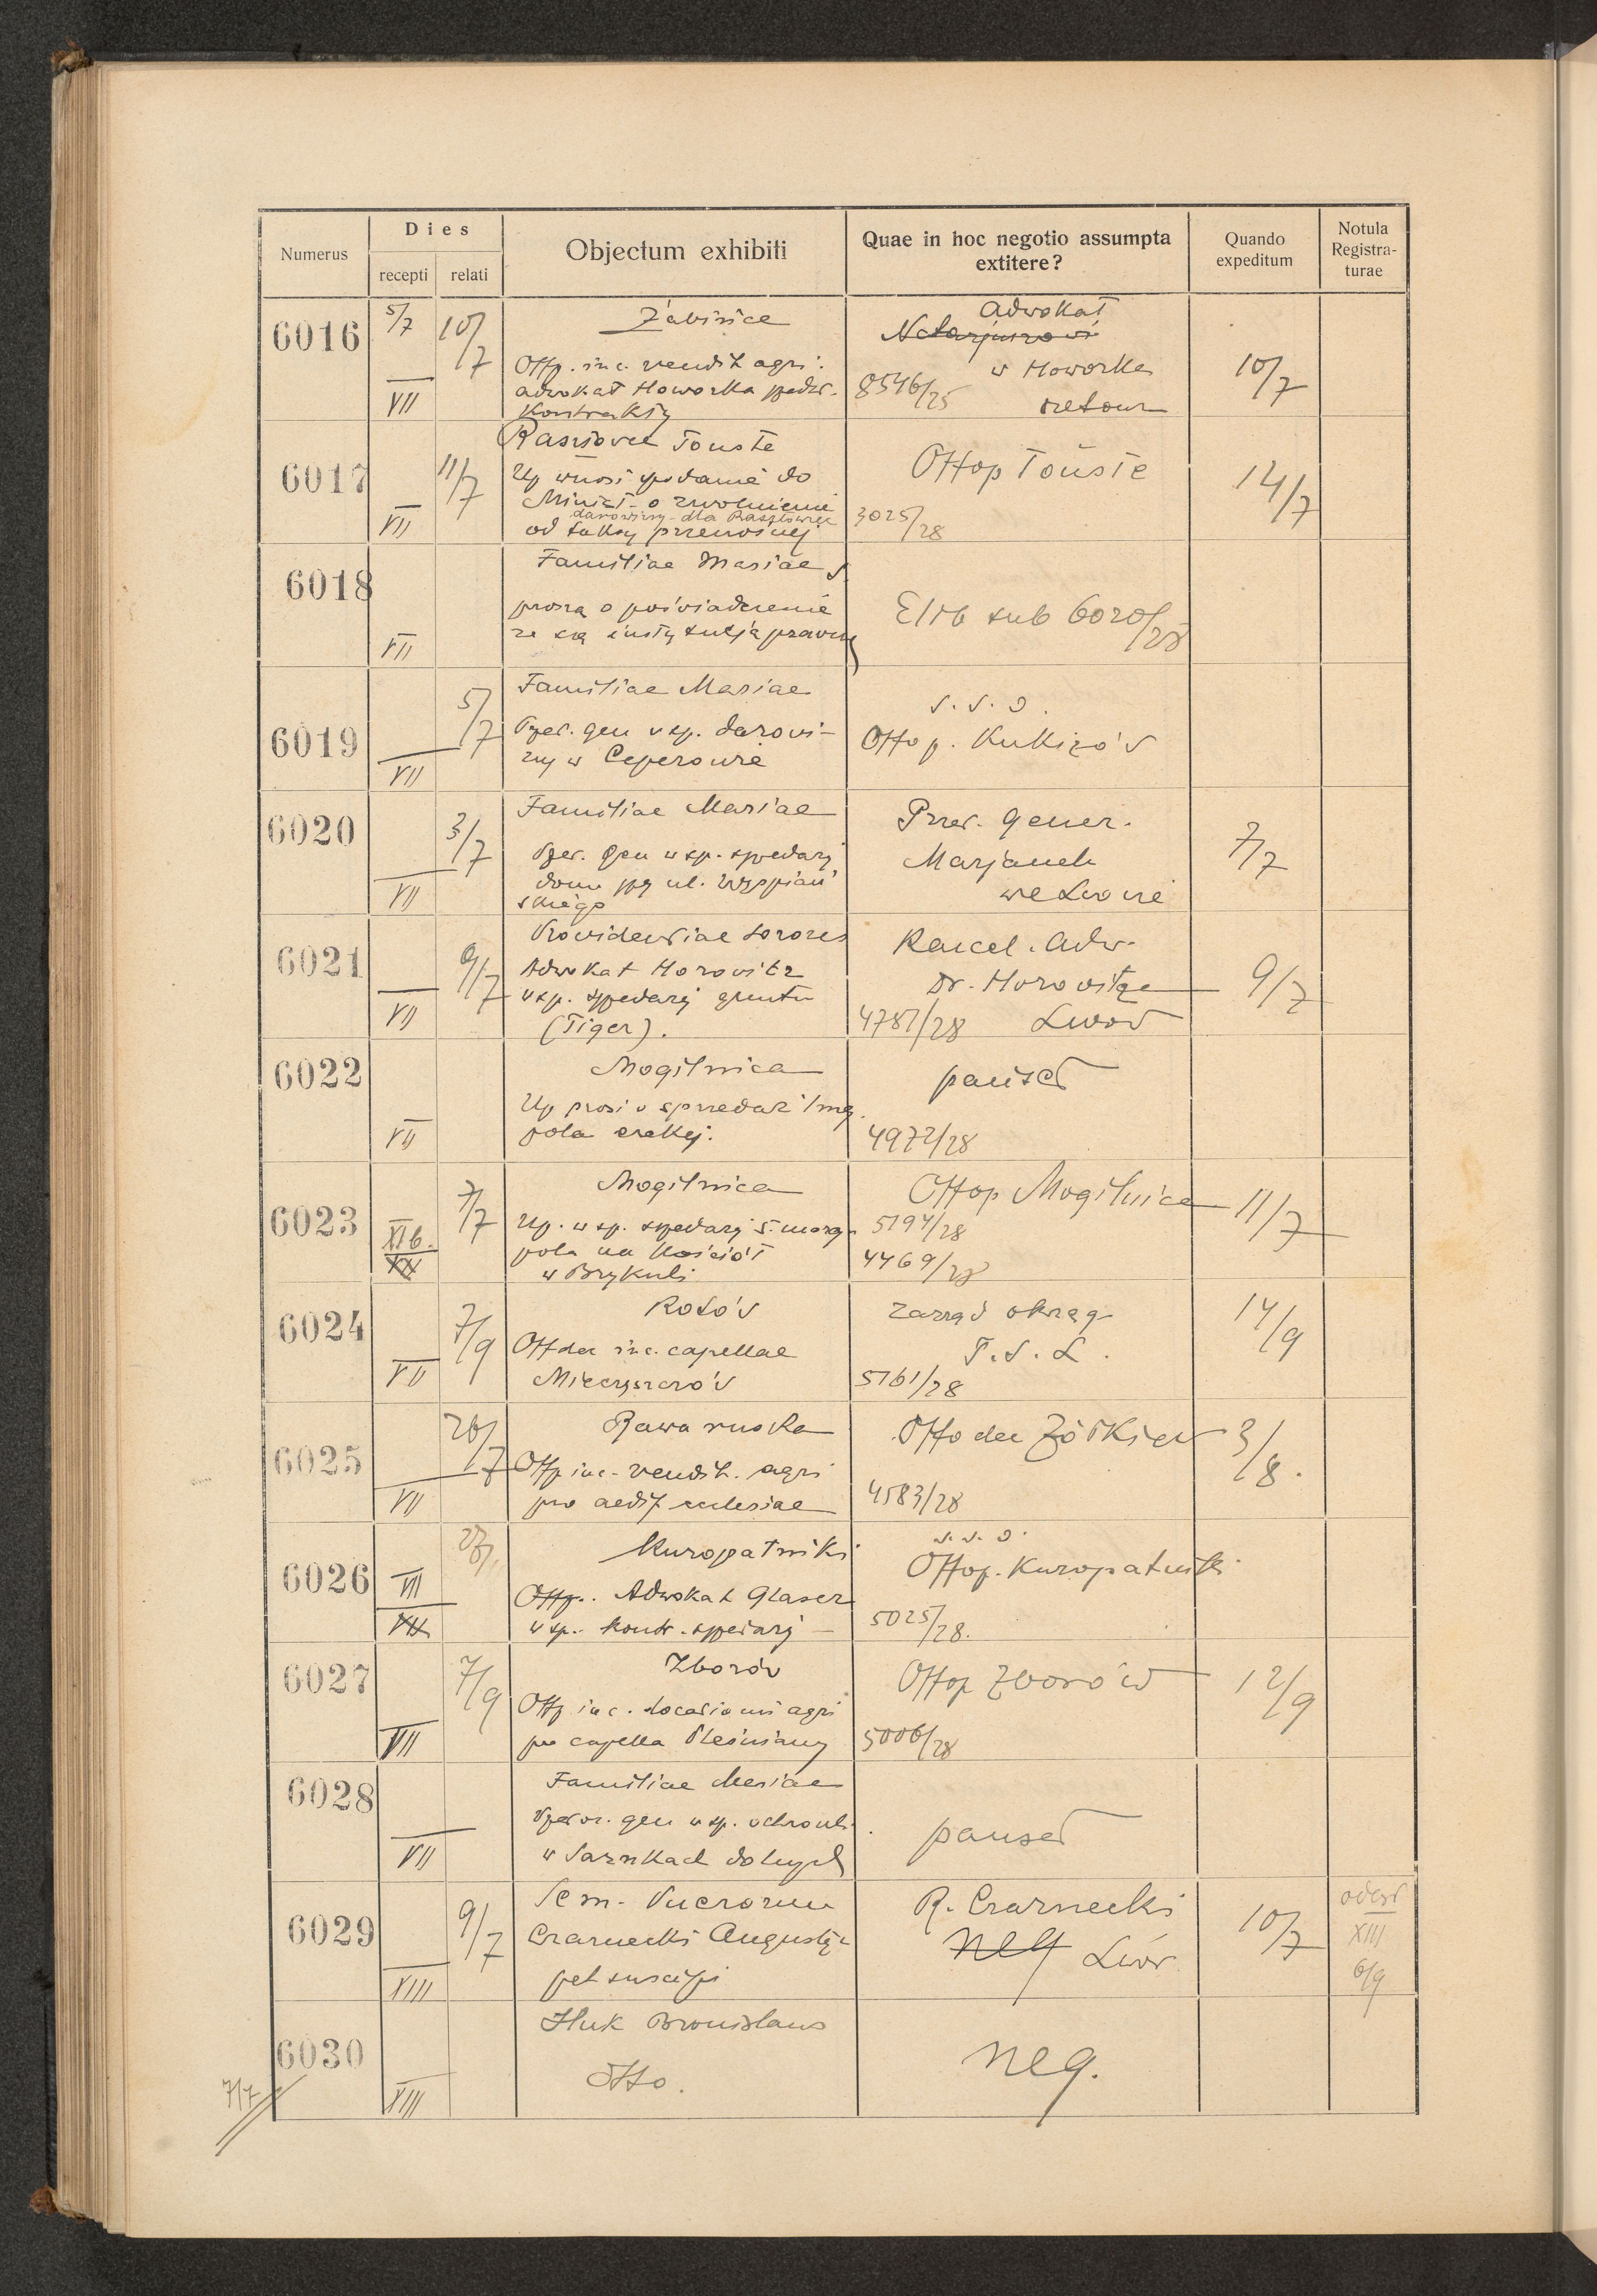 Numerus
Dies
recepti relati
Objectum exhibiti
Quae in hoc negotio assumpta
extitere?
Quando
expeditum
Notula
Registra-
turae
6016
5/7
VII
10/7
Offp. inc. vendit agri.
adwokat Howorka
Kontrakty
Adwokat
Notarjuszowi
w Howorka
8546/25 retour
10/7
6017
VII
11/7
Touste
Up wnosi podanie do
Minist. o zwolnienie
darowizny dla Rasztowiec
od taksy przenośnej
Offop Touste
3025/28
14/7
6018
VII
Familiae Mariae
proszą o poświadczenie
że są instytucją prawną
sub 6020/28
6019
VII
5/7
Familiae Mariae
gen w sp. darowi-
zny w Ceperowie
s. s. o.
Offop. Kukizów
6020
VII
3/7
Familiae Mariae
gen w sp. spedarz
domu przy ul. Wyspiań
skiego
Przeł. gener.
Marjanek
we Lwowie
7/7
6021
VII
9/7
Providentiae Sorores
Adwokat Horovitz
w sp. spedarzy gruntu
(Tiger).
Kancel. Adw.
Dr. Horovitza
4787/28 Lwów
9/7
6022
VII
Mogilnica
Up prosi o sprzedaż 1 mg.
pola erekcj.
pauset
4972/28
6023
XIb.
XX
7/7
Mogilnica
Up. w sp. spedarzy 5 morg.
pola na Kościół
w Brykuli
Offop Mogilnica
5194/28
4469/28
11/7
6024
VII
7/9
Rosów
Offdec inc. capellae
Mieczyszczów
zarząd okręg.
T. S. L.
5761/28
14/9
6025
VII
26/7
Rawa ruska
Offp inc. vendit. agri
pro aedif. ecclesiae
Offo dec Żółkiew
4583/28
3/8.
6026
VII
XII
Kuropatniki
Offp. Adwokat Glaser
w sp. kontr. spedarzy
s. s. o.
Offop. Kuropatniki
5025/28.
6027
VII
7/9
Zborów
Offp inc. locationis agri
pro capella Pleśniany
Offop Zborów
5006/28
12/9
6028
VII
Familiae Mariae
gen w sp. ochronki
w Sarnkach dolnych
pauset
6029
XIII
9/7
Sem. Puerorum
Czarnecki Augustyn
pet suscipi
R. Czarnecki
neg Lwów
10/7
XIII
6/9
6030
XIII
Huk Bronislaus
dtto.
neg.
7/7